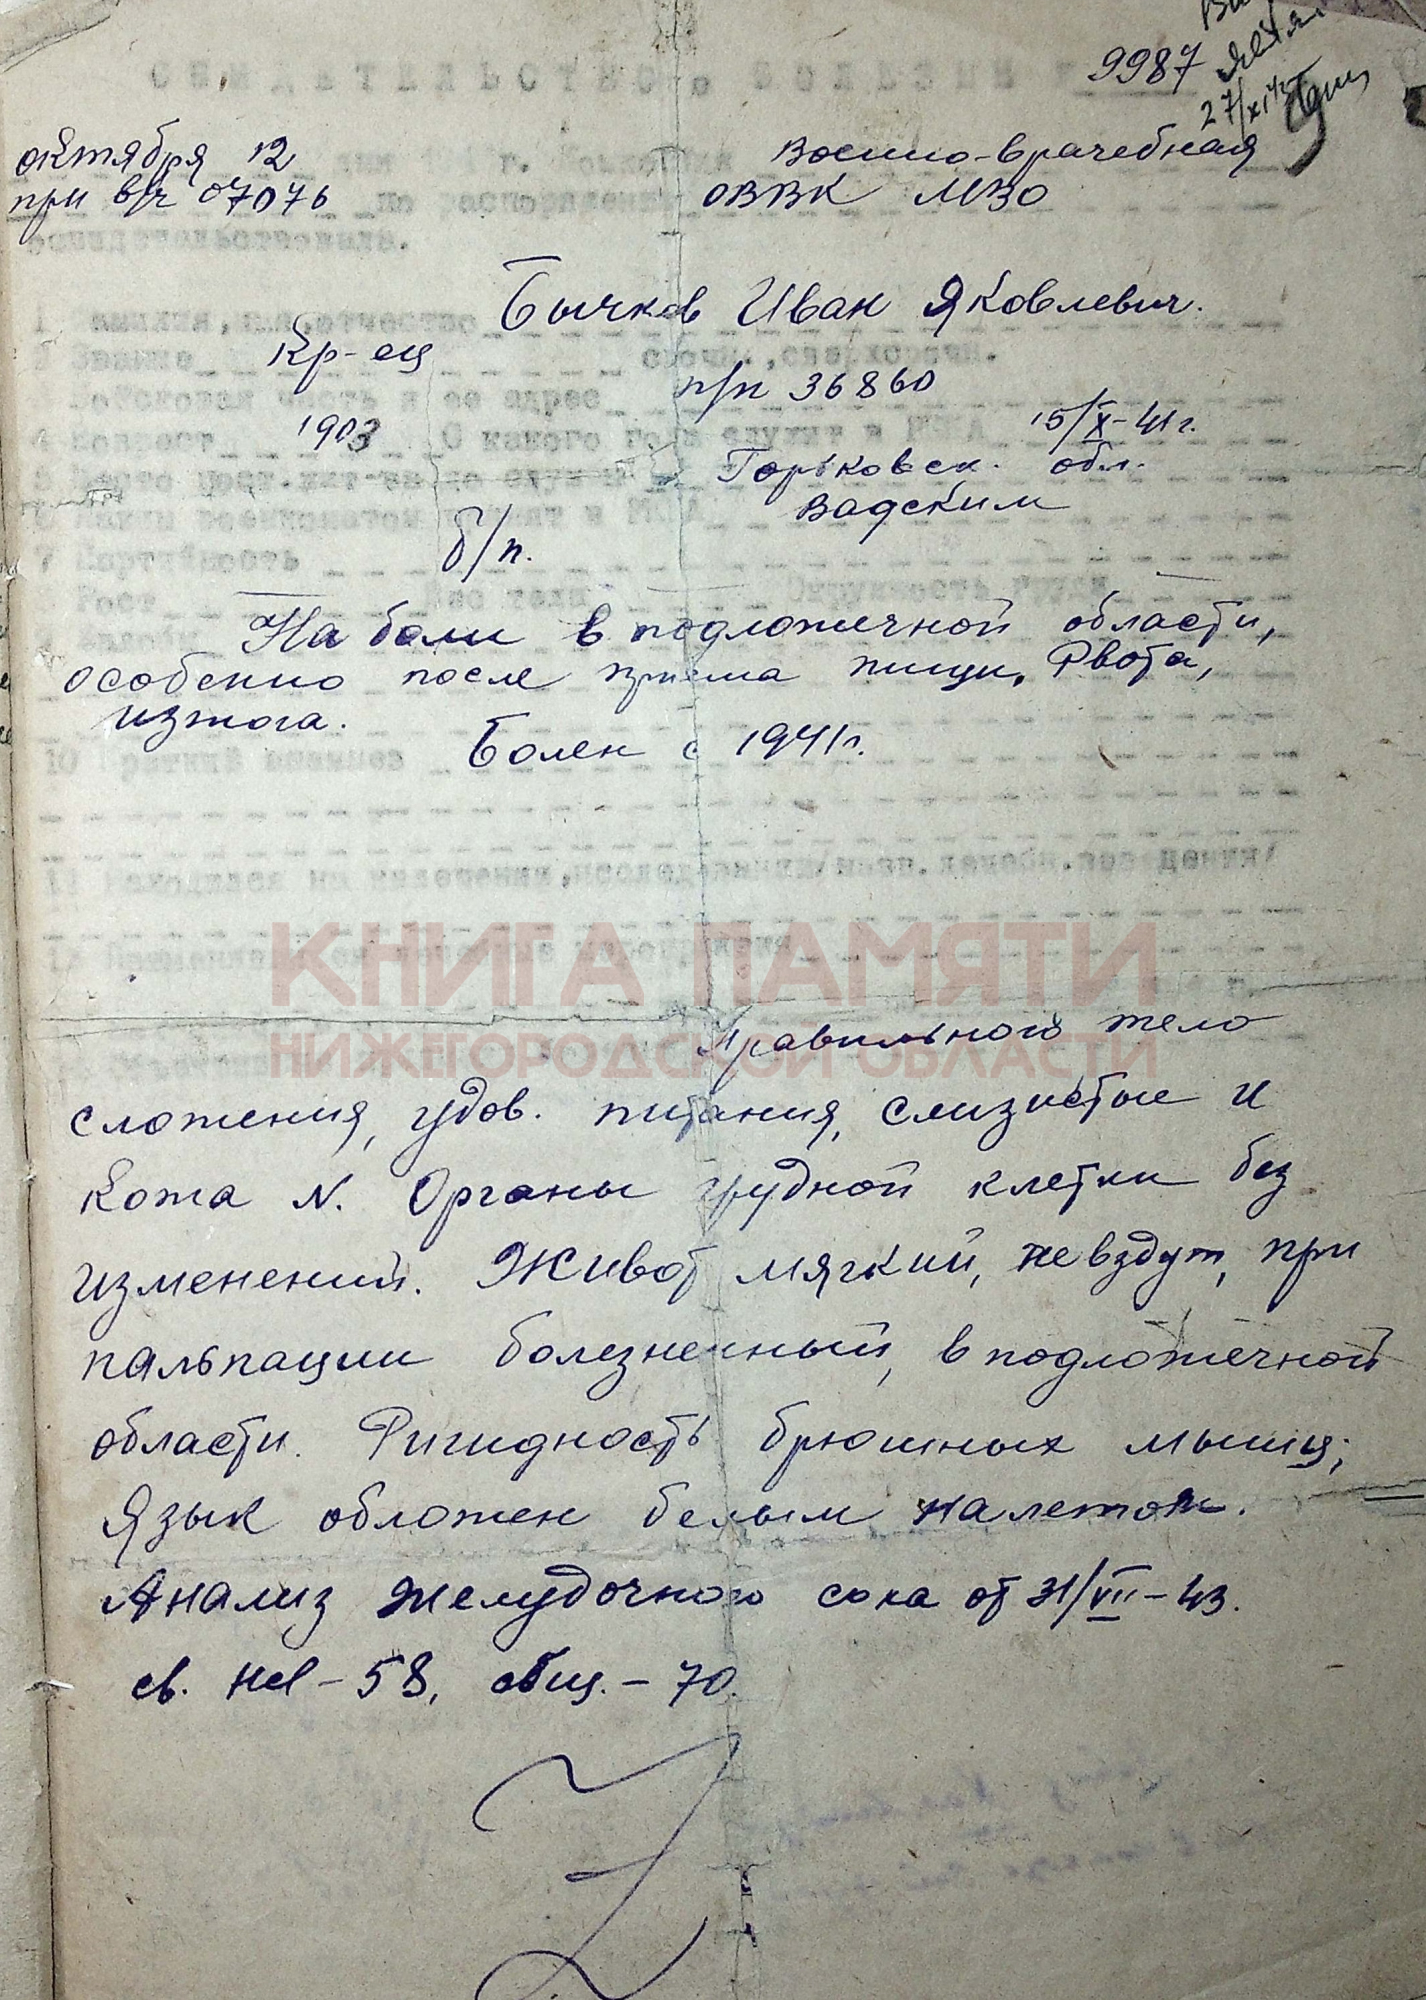 СВИДЕТЕЛЬСТВО о БОЛЕЗНИ 9987
27/XI
октября 12 дня г. Комиссия военно-врачебная
при в/ч 07076 по распоряжению ОВВК МВО
освидетельствовала.
1 Фамилия, имя, отчество Бычков Иван Яковлевич.
Звание Кр-ец срочн., сверхсрочн.
Войсковая часть и ее адрес п/п 36860
4 Возраст 1903 С какого года служит в РККА 15/X-41г.
Место пост. жит-ва до службы Горьковск. обл.
6 Каким военкоматом принят в РККА Вадским
7 Партийность б/п.
Рост Вес тела Окружность груди
9 Жалобы На боли в подложечной области,
особенно после приема пищи. Рвота,
изжога.
10 Краткий анамнез Болен с 1941г.
11 Находился на излечении, исследовании/назв. лечебн. заведения/
12 Применявшиеся лечебные мероприятия
КНИГА ПАМЯТИ
НИЖЕГОРОДСКОЙ ОБЛАСТИ
Правильного тело
сложения, удов. питания, слизистые и
кожа N. Органы грудной клетки без
изменений. Живот мягкий, не вздут, при
пальпации болезненный, в подложечной
области. Ригидность брюшных мышц;
язык обложен белым налетом.
Анализ желудочного сока от 31/VII-43.
св. Hcl-58, общ.-70.